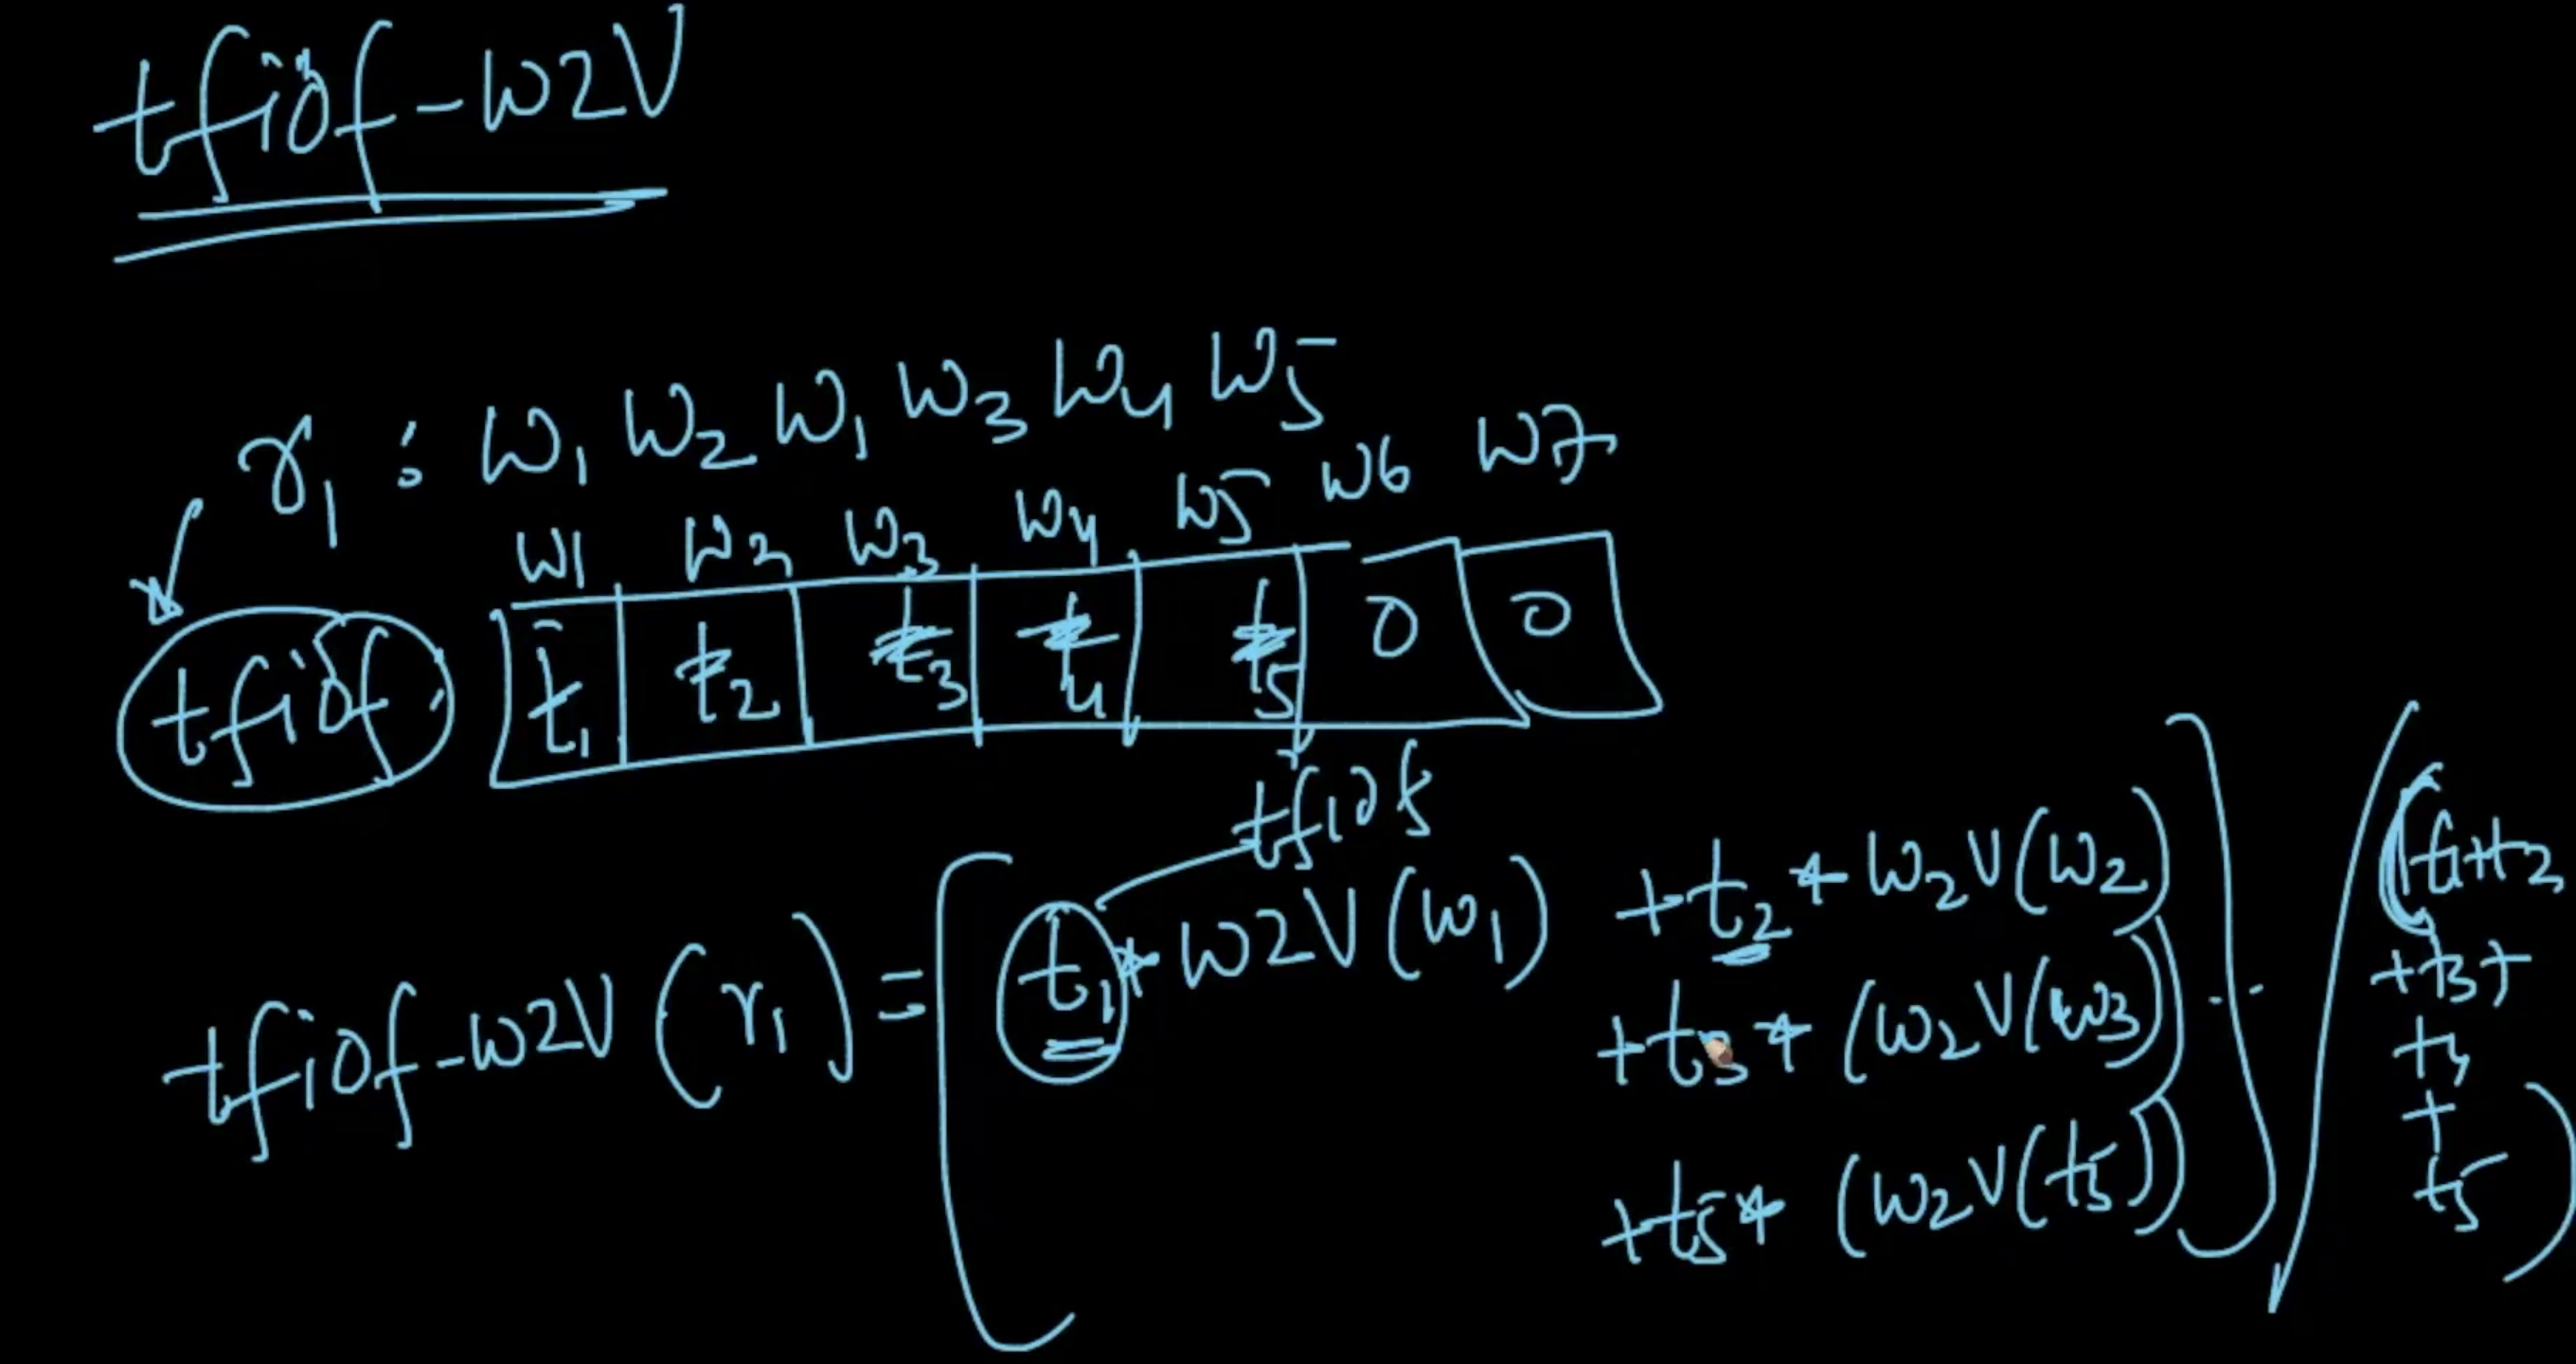 tfidf-w2V
r1 : w1 w2 w1 w3 w4 w5
w1 w2 w3 w4 w5 w6 w7
tfidf t1 t2 t3 t4 t5 0 0
tfidf
tfidf-w2V (r1) = [ t1 * w2V (w1) + t2 * w2V (w2)
+ t3 * (w2V (w3))
+ t5 * (w2V (t5)) ] / (t1 + t2
+ t3 +
t4
+
t5)